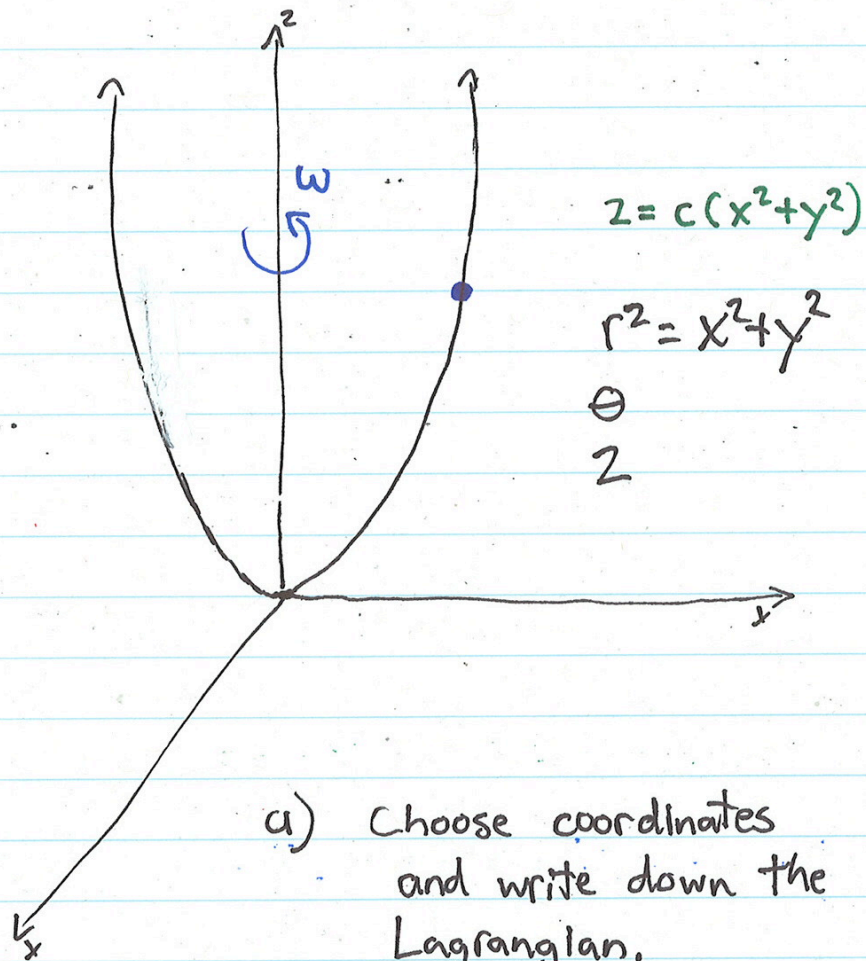 z
ω
z = c(x²+y²)
r² = x²+y²
θ
z
x
x
a) Choose coordinates
and write down the
Lagrangian.